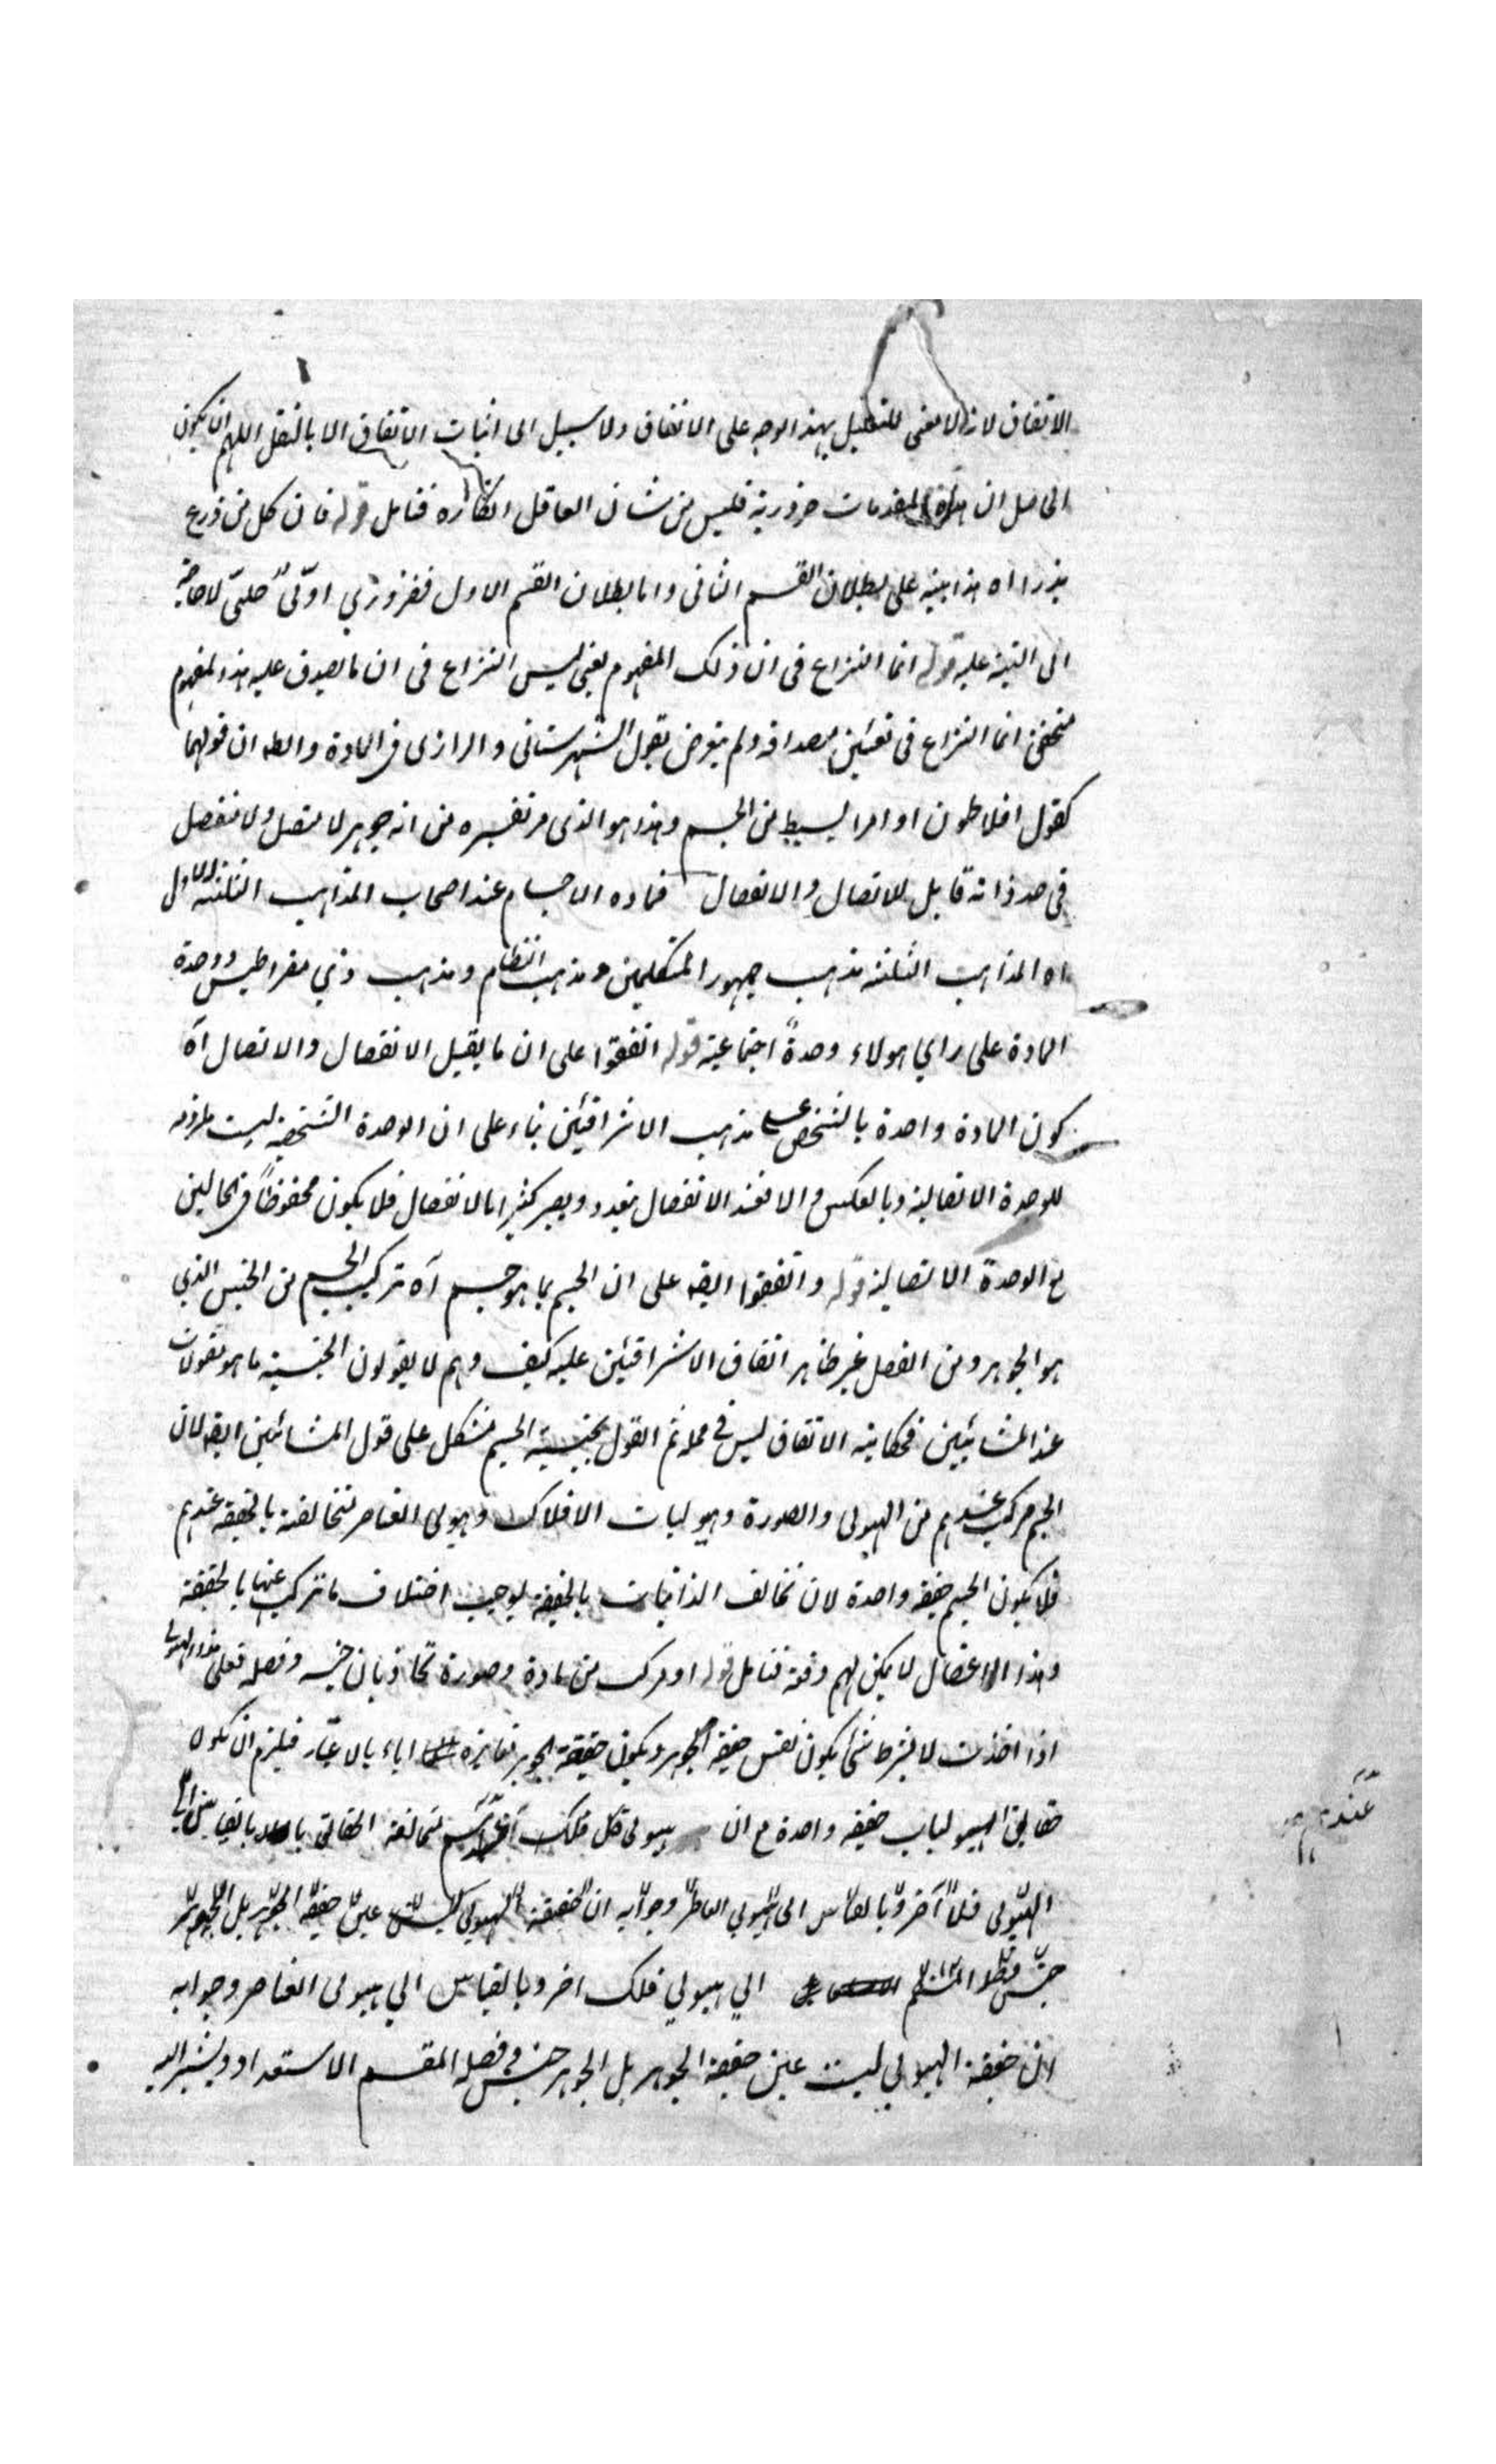 الاتفاق لانه لا معنى للتعليل بهذا الوجه على الاتفاق ولا سبيل الى اثبات الاتفاق الا بالنقل اللهم ان يكون
الحاصل ان هذه المقدمات ضرورية فليس من شان العاقل انكاره فتامل قوله فان كل من زرع
بذرا اه هذا بينة على بطلان القسم الثانى واما بطلان القسم الاول فضروري اولى جلى لا حاجة
الى التنبيه عليه قوله انما النزاع فى ان ذلك المفهوم يعنى ليس النزاع فى ان ما يصدق عليه هذا المفهوم
متحقق انما النزاع فى تعيين مصداقه ولم يتعرض بقول الشهرستانى والرازى فى المادة والظ ان قولهما
كقول افلاطون او امرا بسيط من الجسم وهذا هو الذى مر تفسيره من انه جوهر لا متصل ولا منفصل
فى حد ذاته قابل للاتصال والانفصال فمادة الاجسام عند اصحاب المذاهب الثلثة الاول
اه المذاهب الثلثة مذهب جمهور المتكلمين ومذهب النظام ومذهب ذي مقراطيس ووحدة
المادة على راي هولاء وحدةً اجتماعية قوله اتفقوا على ان ما يقبل الانفصال والاتصال آه
كون المادة واحدة بالشخص على مذهب الاشراقيين بناء على ان الوحدة الشخصية ليست ملزومة
للوحدة الاتصالية وبالعكس والا فعند الانفصال يتعدد ويصير كثيرا بالانفصال فلا يكون محفوظاً فى الحالين
مع الوحدة الاتصالية قوله واتفقوا ايضه على ان الجسم بما هو جسم آه تركيب الجسم من الجنس الذي
هو الجوهر ومن الفصل غير ظاهر اتفاق الاشراقيين عليه كيف وهم لا يقولون الجنسية ما هو مقولات
عند المشائيين فحكاية الاتفاق ليس فى محله ثم القول بجنسية الجسم مشكل على قول المشائيين ايضه لان
الجسم مركب عندهم من الهيولى والصورة وهيوليات الافلاك وهيولى العناصر متخالفة بالحقيقة عندهم
فلا يكون الجسم حقيقة واحدة لان تخالف الذاتيات بالحقيقة يوجب اختلاف ما تركب عنها بالحقيقة
وهذا الاعضال لا يمكن لهم دفعه فتامل قوله او مركب من مادة وصورة تحاذيان جنسه وفصله فعلى هذا الهيولى
اذا اخذت لا بشرط شئ يكون نفس حقيقة الجوهر ويكون حقيقة الجوهر مغايرة اياه بالاعتبار فيلزم ان يكون
حقايق الهيوليات حقيقة واحدة مع ان هيولى كل فلك عندهم متخالفة الحقايق بالقياس الى
الهيولى فلك آخر وبالقياس الى الهيولي العناصر وجوابه ان حقيقة الهيولي ليست عين حقيقة الجوهر بل الجوهر
جنس
الي هيولي فلك اخر وبالقياس الي هيولى العناصر وجوابه
ان حقيقة الهيولي ليست عين حقيقة الجوهر بل الجوهر جنس وفصله المقسم الاستعداد ويشير اليه
عندهم